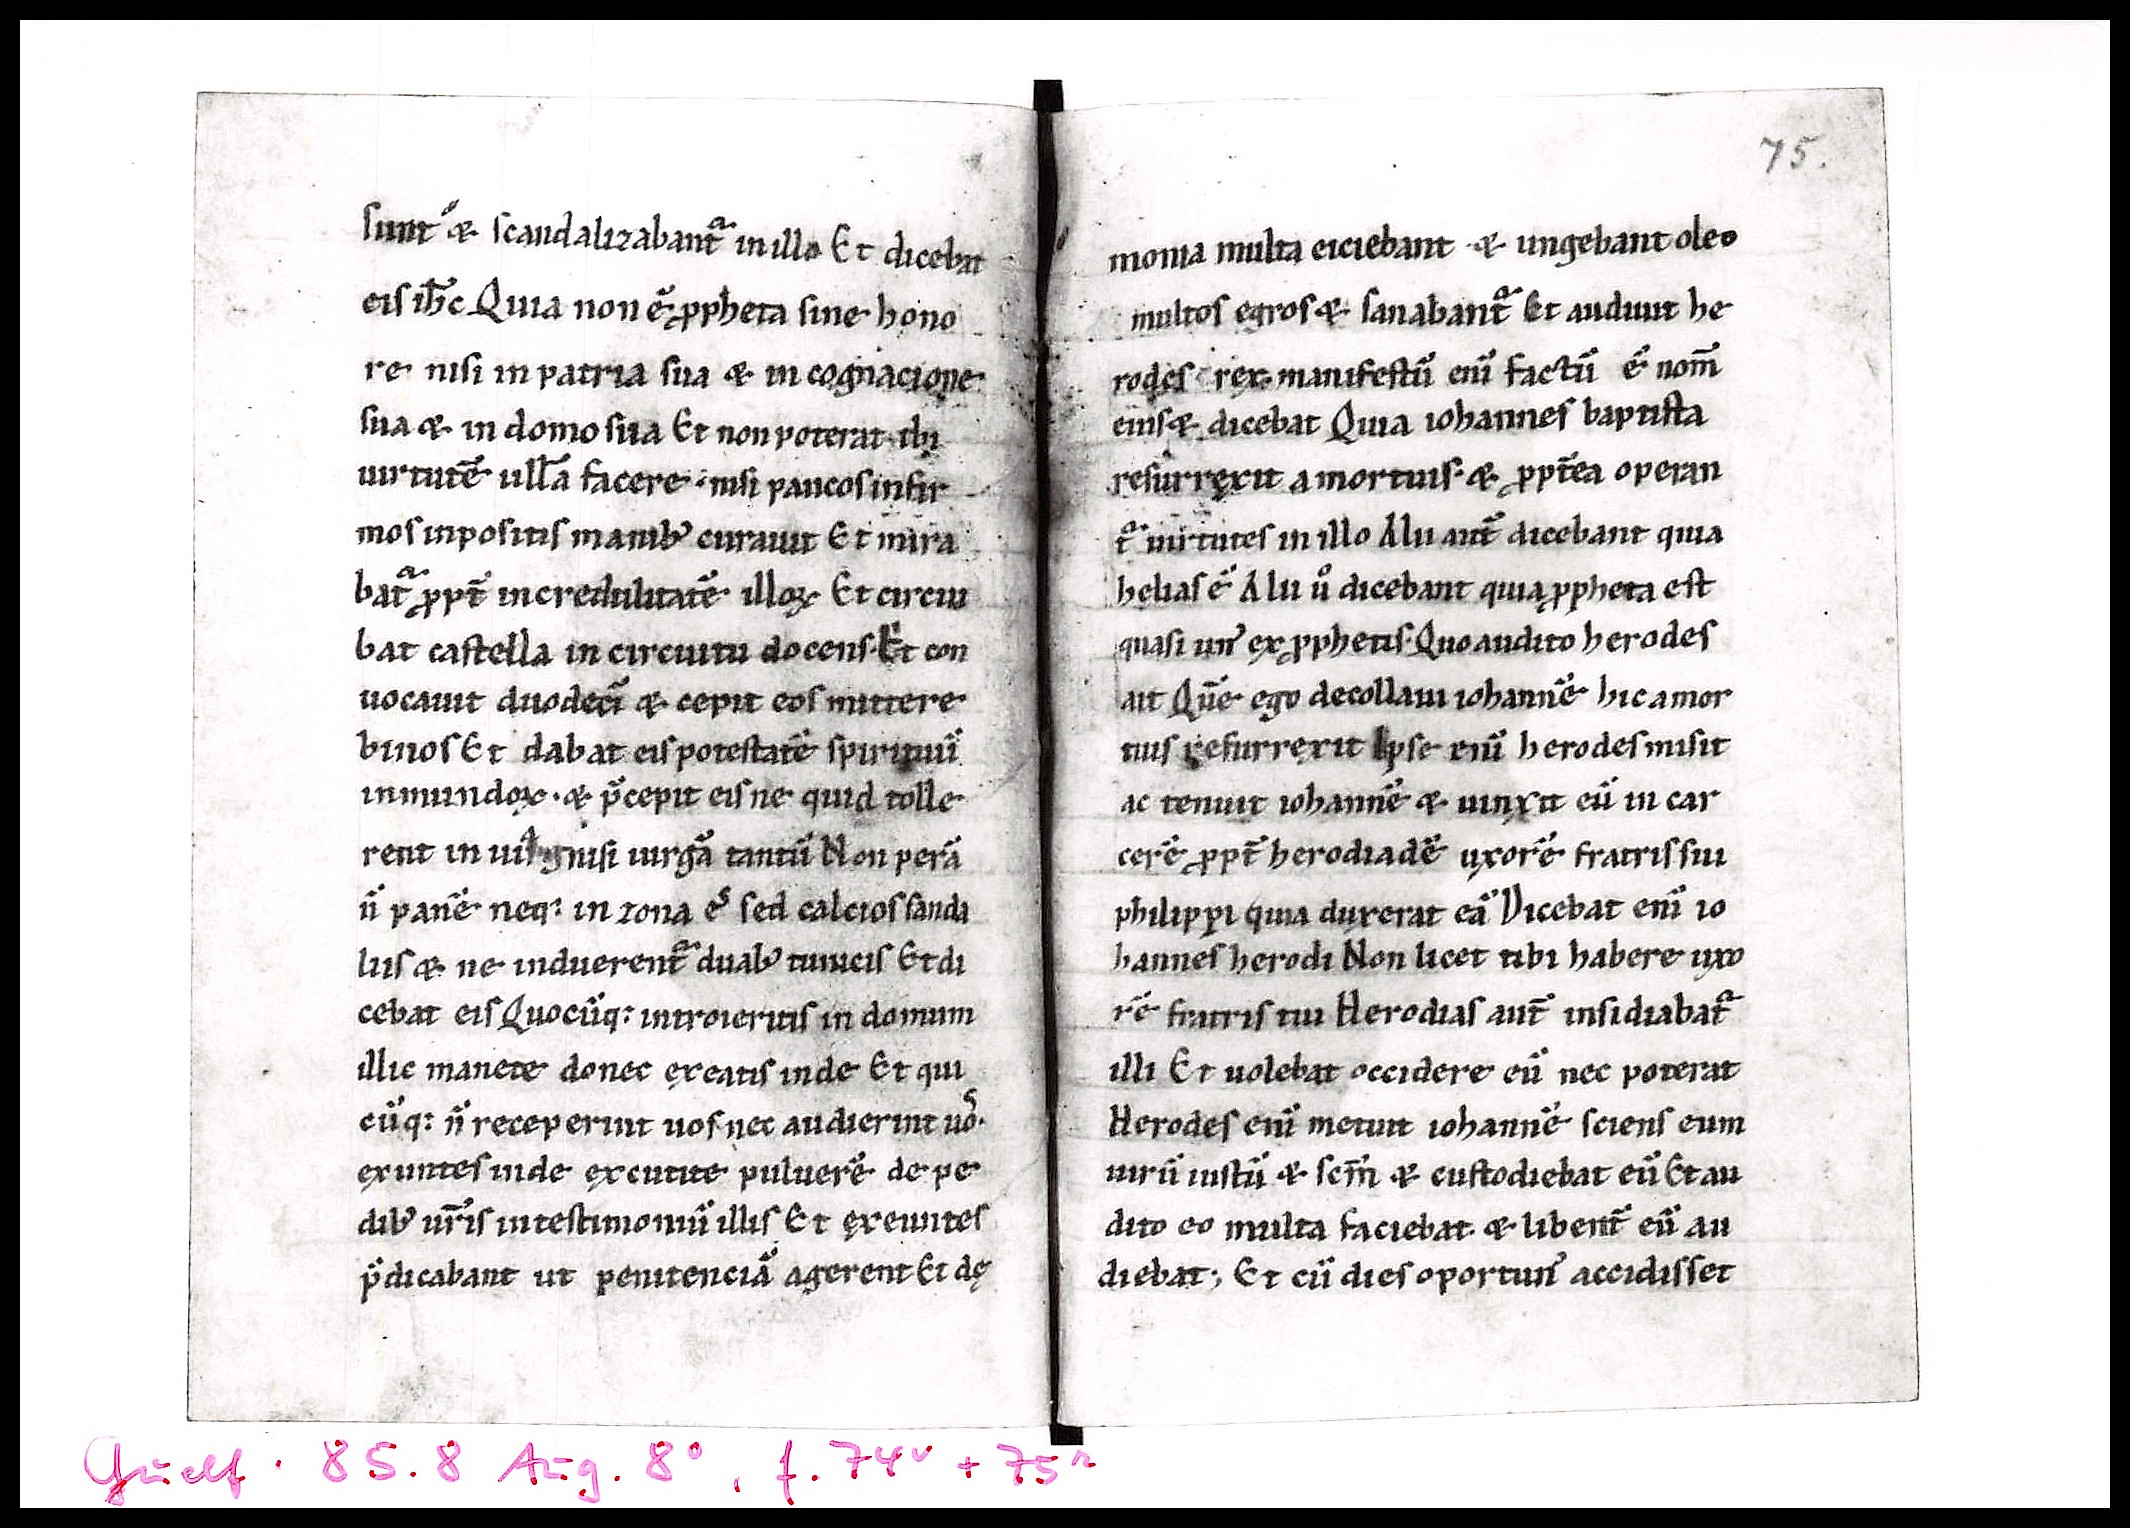 sunt· & scandalizabant᷑ in illo Et dicebat
eis ih̅c Quia non ē ꝓpheta sine hono
re nisi in patria sua & in cognacione
sua & in domo sua Et non poterat ibi
uirtutē ullā facere· nisi paucos infir
mos inpositis manibꝰ curauit Et mira
bat᷑ ꝓpt̅ incredulitatē illoꝝ Et circui
bat castella in circuitu docens· Et con
uocauit duodeci̅ & cepit eos mittere
binos Et dabat eis potestatē spirituū
inmundoꝝ· & p̅cepit eis ne quid tolle
rent in uia nisi uirgā tantū Non perā
n̅ panē neq: in zona es sed calcios sanda
liis & ne induerent᷑ duabꝰ tunicis Et di
cebat eis Quocūq: introieritis in domum
illic manete donec exeatis inde Et qui
cūq: n̅ receperint uos nec audierint uos·
exuntes inde excutite puluerē de pe
dibꝰ ur̅is in testimoniū illis Et exeuntes
p̅dicabant ut penitenciā agerent Et dę
75.
monia multa eiciebant & ungebant oleo
multos egros & sanabant᷑ Et audiuit he
rodes rex manifestū eni̅ factū ē nom̅
eius & dicebat Quia iohannes baptista
resurrexit a mortuis· & ꝓpt̅ea operan
t᷑ uirtutes in illo Alii aut̅ dicebant quia
helias ē Alii uͦ dicebant quia ꝓpheta est
quasi unꝰ ex ꝓphetis· Quo audito herodes
ait Que̅ ego decollaui iohannē hic a mor
tuis resurrexit Ipse eni̅ herodes misit
ac tenuit iohannē & uinxit eū in car
cerē ꝓpt̅ herodiadē uxorē fratris sui
philippi quia duxerat eā Dicebat eni̅ io
hannes herodi Non licet tibi habere uxo
rē fratris tui Herodias aut̅ insidiabat᷑
illi Et uolebat occidere eū nec poterat
Herodes eni̅ metuit iohannē sciens eum
uirū iustū & sc̅m & custodiebat eū Et au
dito eo multa faciebat & libent̅ eū au
diebat; Et cū dies oportunꝰ accidisset
Guelf. 85.8 Aug. 8°, f. 74v + 75r